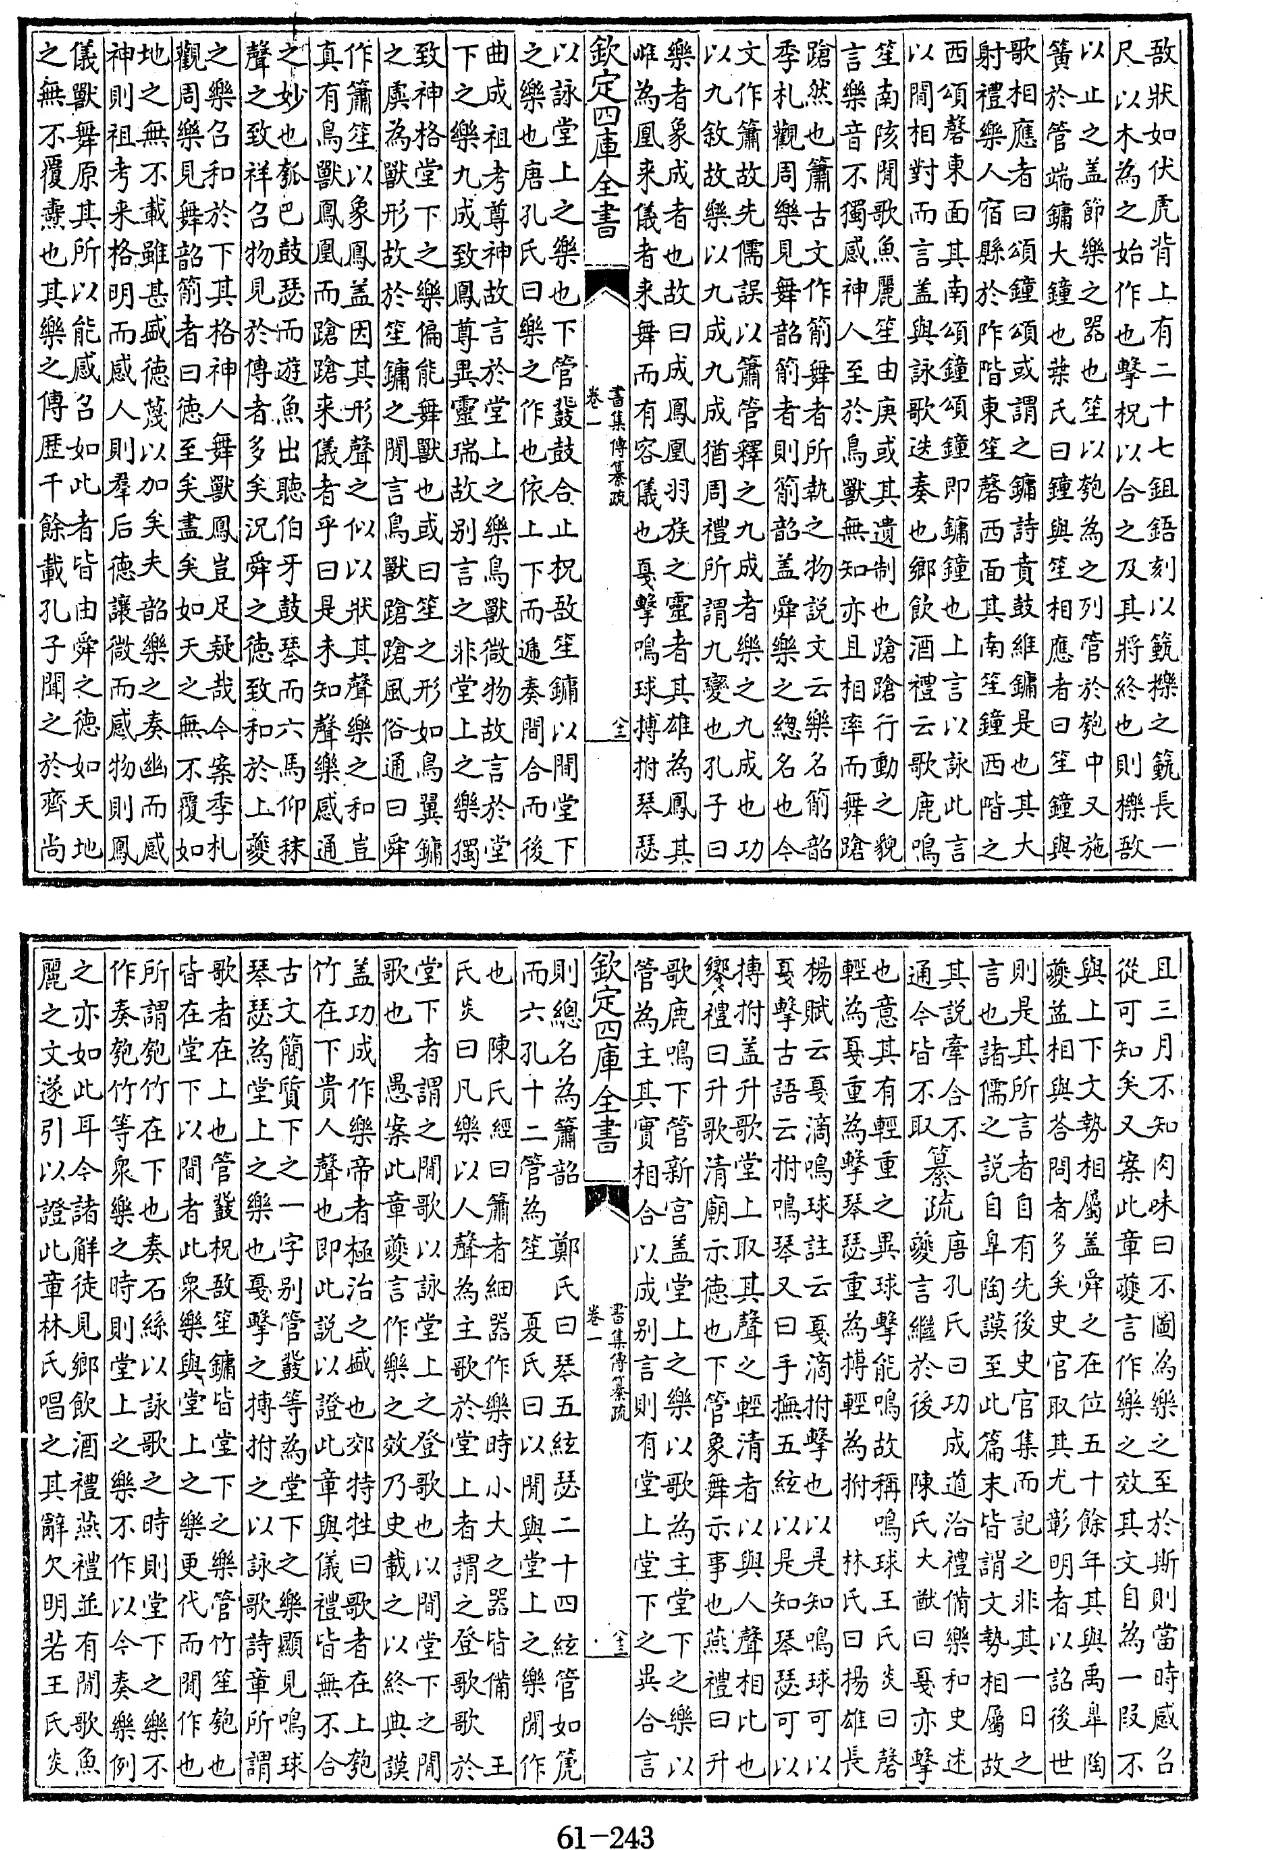 敔狀如伏虎背上有二十七鉏鋙刻以籈擽之籈長一
尺以木為之始作也擊柷以合之及其將終也則擽敔
以止之盖節樂之器也笙以匏為之列管於匏中又施
簧於管端鏞大鐘也葉氏曰鐘與笙相應者曰笙鐘與
歌相應者曰頌鐘頌或謂之鏞詩賁鼓維鏞是也其大
射禮樂人宿縣於阼階東笙磬西面其南笙鐘西階之
西頌磬東面其南頌鐘頌鐘即鏞鐘也上言以詠此言
以間相對而言盖與詠歌迭奏也鄉飲酒禮云歌鹿鳴
笙南陔間歌魚麗笙由庚或其遺制也蹌蹌行動之貌
言樂音不獨感神人至於鳥獸無知亦且相率而舞蹌
蹌然也簫古文作箾舞者所執之物説文云樂名箾韶
季札觀周樂見舞韶箾者則箾韶盖舜樂之總名也今
文作簫故先儒誤以簫管釋之九成者樂之九成也功
以九敘故樂以九成九成猶周禮所謂九變也孔子曰
樂者象成者也故曰成鳳凰羽族之靈者其雄為鳳其
雌為凰来儀者来舞而有容儀也戛擊鳴球搏拊琴瑟
欽定四庫全書
書集傳纂疏
卷一
六三
以詠堂上之樂也下管鼗鼓合止柷敔笙鏞以間堂下
之樂也唐孔氏曰樂之作也依上下而遞奏間合而後
曲成祖考尊神故言於堂上之樂鳥獸微物故言於堂
下之樂九成致鳳尊異靈瑞故别言之非堂上之樂獨
致神格堂下之樂偏能舞獸也或曰笙之形如鳥翼鏞
之虡為獸形故於笙鏞之間言鳥獸蹌蹌風俗通曰舜
作簫笙以象鳳盖因其形聲之似以狀其聲樂之和豈
真有鳥獸鳳凰而蹌蹌来儀者乎曰是未知聲樂感通
之妙也瓠巴鼓瑟而遊魚出聽伯牙鼓琴而六馬仰秣
聲之致祥召物見於傳者多矣況舜之德致和於上夔
之樂召和於下其格神人舞獸鳳豈足疑哉今案季札
觀周樂見舞韶箾者曰徳至矣盡矣如天之無不覆如
地之無不載雖甚盛德蔑以加矣夫韶樂之奏幽而感
神則祖考来格明而感人則羣后德讓微而感物則鳳
儀獸舞原其所以能感召如此者皆由舜之德如天地
之無不覆燾也其樂之傳歴千餘載孔子聞之於齊尚
且三月不知肉味曰不圖為樂之至於斯則當時感召
從可知矣又案此章夔言作樂之效其文自為一段不
與上下文勢相屬盖舜之在位五十餘年其與禹臯陶
夔益相與答問者多矣史官取其尤彰明者以詔後世
則是其所言者自有先後史官集而記之非其一日之
言也諸儒之説自臯陶謨至此篇末皆謂文勢相屬故
其說牽合不
通今皆不取
纂疏
唐孔氏曰功成道洽禮備樂和史述
夔言繼於後　陳氏大猷曰戛亦擊
也意其有輕重之異球擊能鳴故稱鳴球王氏炎曰磬
輕為戛重為擊琴瑟重為搏輕為拊　林氏曰揚雄長
楊賦云戛滴鳴球註云戛滴拊擊也以是知鳴球可以
戛擊古語云拊鳴琴又曰手撫五絃以是知琴瑟可以
搏拊盖升歌堂上取其聲之輕清者以與人聲相比也
饗禮曰升歌清廟示德也下管象舞示事也燕禮曰升
歌鹿鳴下管新宮盖堂上之樂以歌為主堂下之樂以
管為主其實相合以成别言則有堂上堂下之異合言
欽定四庫全書
書集傳纂疏
卷一
六三
則總名為簫韶　鄭氏曰琴五絃瑟二十四絃管如箎
而六孔十二管為笙　夏氏曰以間與堂上之樂間作
也　陳氏經曰簫者細器作樂時小大之器皆備　王
氏炎曰凡樂以人聲為主歌於堂上者謂之登歌歌於
堂下者謂之間歌以詠堂上之登歌也以間堂下之間
歌也　愚案此章夔言作樂之效乃史載之以終典謨
盖功成作樂帝者極治之盛也郊特牲曰歌者在上匏
竹在下貴人聲也即此説以證此章與儀禮皆無不合
古文簡質下之一字别管鼗等為堂下之樂顯見鳴球
琴瑟為堂上之樂也戛擊之搏拊之以詠歌詩章所謂
歌者在上也管鼗柷敔笙鏞皆堂下之樂管竹笙匏也
皆在堂下以間者此衆樂與堂上之樂更代而間作也
所謂匏竹在下也奏石絲以詠歌之時則堂下之樂不
作奏匏竹等衆樂之時則堂上之樂不作以今奏樂例
之亦如此耳今諸解徒見鄉飲酒禮燕禮並有間歌魚
麗之文遂引以證此章林氏唱之其辭欠明若王氏炎
61-243